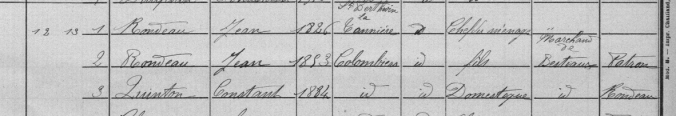 St Berthevin
la
12 13 1 Rondeau Jean 1826 Tannière id Chef de ménage
Marchand
de
2 Rondeau Jean 1853 Colombiers id fils Bestiaux Patron
3 Quinton Constant 1884 id id Domestique id Rondeau